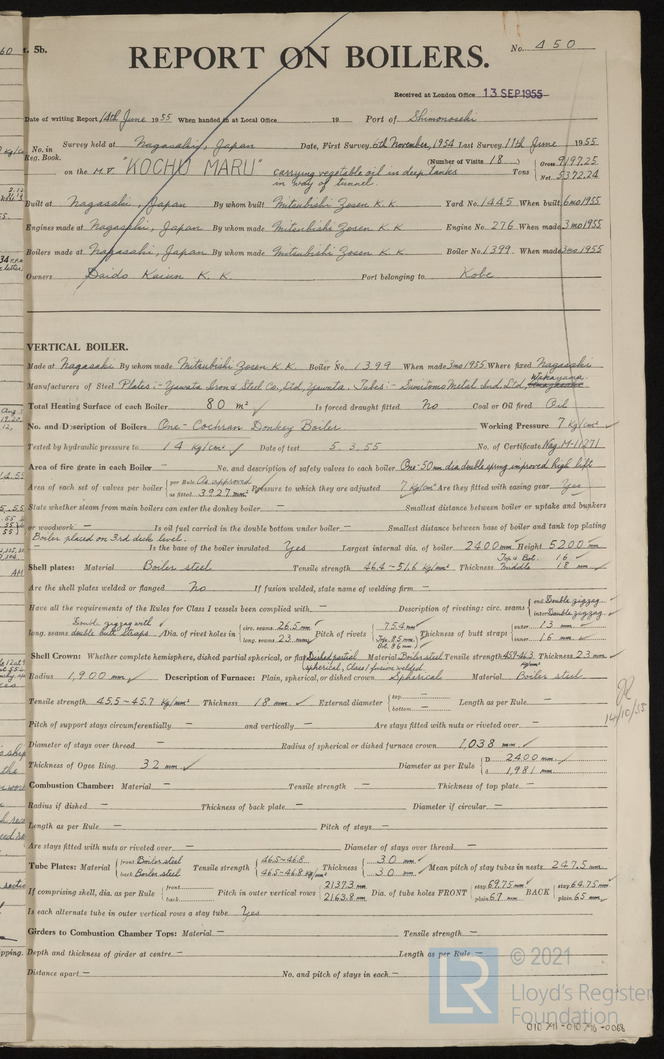 t. 5b.
REPORT ON BOILERS.
No. 450
Received at London Office 13 SEP 1955
Date of writing Report 14th June 1955 When handed in at Local Office 19 Port of Shimonoseki
No. in Reg. Book. Survey held at Nagasaki, Japan Date, First Survey 6th November, 1954 Last Survey 11th June 1955
(Number of Visits 18)
on the M.V. "KOCHU MARU" carrying vegetable oil in deep tanks in way of tunnel. Tons { Gross 9197.25 Net 5372.24
Built at Nagasaki, Japan By whom built Mitsubishi Zosen K.K. Yard No. 1445 When built 6mo1955
Engines made at Nagasaki, Japan By whom made Mitsubishi Zosen K.K. Engine No. 276 When made 3mo1955
Boilers made at Nagasaki, Japan By whom made Mitsubishi Zosen K.K. Boiler No. 1399 When made 3mo1955
Owners Daido Kaiun K.K. Port belonging to Kobe
VERTICAL BOILER.
Made at Nagasaki By whom made Mitsubishi Zosen K.K. Boiler No. 1399 When made 3mo1955 Where fixed Nagasaki
Manufacturers of Steel Plates:- Yawata Iron & Steel Co., Ltd, Yawata. Tubes:- Sumitomo Metal Ind. Ltd, Wakayama
Total Heating Surface of each Boiler 80 m² Is forced draught fitted No Coal or Oil fired Oil
No. and Description of Boilers One - Cochran Donkey Boiler Working Pressure 7 kg/cm²
Tested by hydraulic pressure to 14 kg/cm² Date of test 5.3.55 No. of Certificate Nag. M-11271
Area of fire grate in each Boiler — No. and description of safety valves to each boiler One-50mm dia double spring improved high lift
Area of each set of valves per boiler { per Rule As approved as fitted 3927mm² Pressure to which they are adjusted 7 kg/cm² Are they fitted with easing gear Yes
State whether steam from main boilers can enter the donkey boiler — Smallest distance between boiler or uptake and bunkers
or woodwork — Is oil fuel carried in the double bottom under boiler — Smallest distance between base of boiler and tank top plating
Boiler placed on 3rd deck level.
— Is the base of the boiler insulated Yes Largest internal dia. of boiler 2400mm Height 5200mm
Shell plates: Material Boiler steel Tensile strength 46.4~51.6 kg/mm² Thickness Top & Bot. 16 middle 18 mm
Are the shell plates welded or flanged No If fusion welded, state name of welding firm —
Have all the requirements of the Rules for Class I vessels been complied with — Description of riveting: circ. seams { end Double zigzag inter Double zigzag
long. seams Double zigzag with double butt straps Dia. of rivet holes in { circ. seams 26.5mm long. seams 23 mm Pitch of rivets { 75.4mm Top. 85mm Bot. 86mm Thickness of butt straps { outer 13 mm inner 16 mm
Shell Crown: Whether complete hemisphere, dished partial spherical, or flat Dished partial spherical, Class I fusion welded Material Boiler steel Tensile strength 45.9-46.3 kg/mm² Thickness 23 mm
Radius 1,900 mm Description of Furnace: Plain, spherical, or dished crown Spherical Material Boiler steel
Tensile strength 45.5-45.7 kg/mm² Thickness 18 mm External diameter { top — bottom — Length as per Rule —
Pitch of support stays circumferentially — and vertically — Are stays fitted with nuts or riveted over —
Diameter of stays over thread — Radius of spherical or dished furnace crown 1,038 mm
Thickness of Ogee Ring 32 mm Diameter as per Rule { D 2400 mm d 1,981 mm
Combustion Chamber: Material — Tensile strength — Thickness of top plate —
Radius if dished — Thickness of back plate — Diameter if circular —
Length as per Rule — Pitch of stays —
Are stays fitted with nuts or riveted over — Diameter of stays over thread —
Tube Plates: Material { front Boiler steel back Boiler steel Tensile strength { 46.5~46.8 46.5~46.8 kg/mm² Thickness { 30 mm 30 mm Mean pitch of stay tubes in nests 247.5 mm
If comprising shell, dia. as per Rule { front back Pitch in outer vertical rows { 2137.3 mm 2163.8 mm Dia. of tube holes FRONT { stay 69.75 mm plain 67 mm BACK { stay 64.75 mm plain 65 mm
Is each alternate tube in outer vertical rows a stay tube Yes
Girders to Combustion Chamber Tops: Material — Tensile strength —
Depth and thickness of girder at centre — Length as per Rule —
Distance apart — No. and pitch of stays in each —
14/10/55
LR
© 2021
Lloyd's Register
Foundation
010791-010796-0068